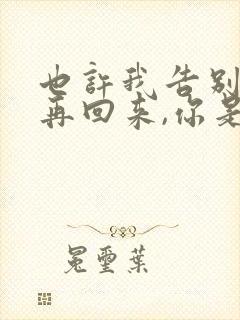 也許我告别
再回来,你是
冕璽葉